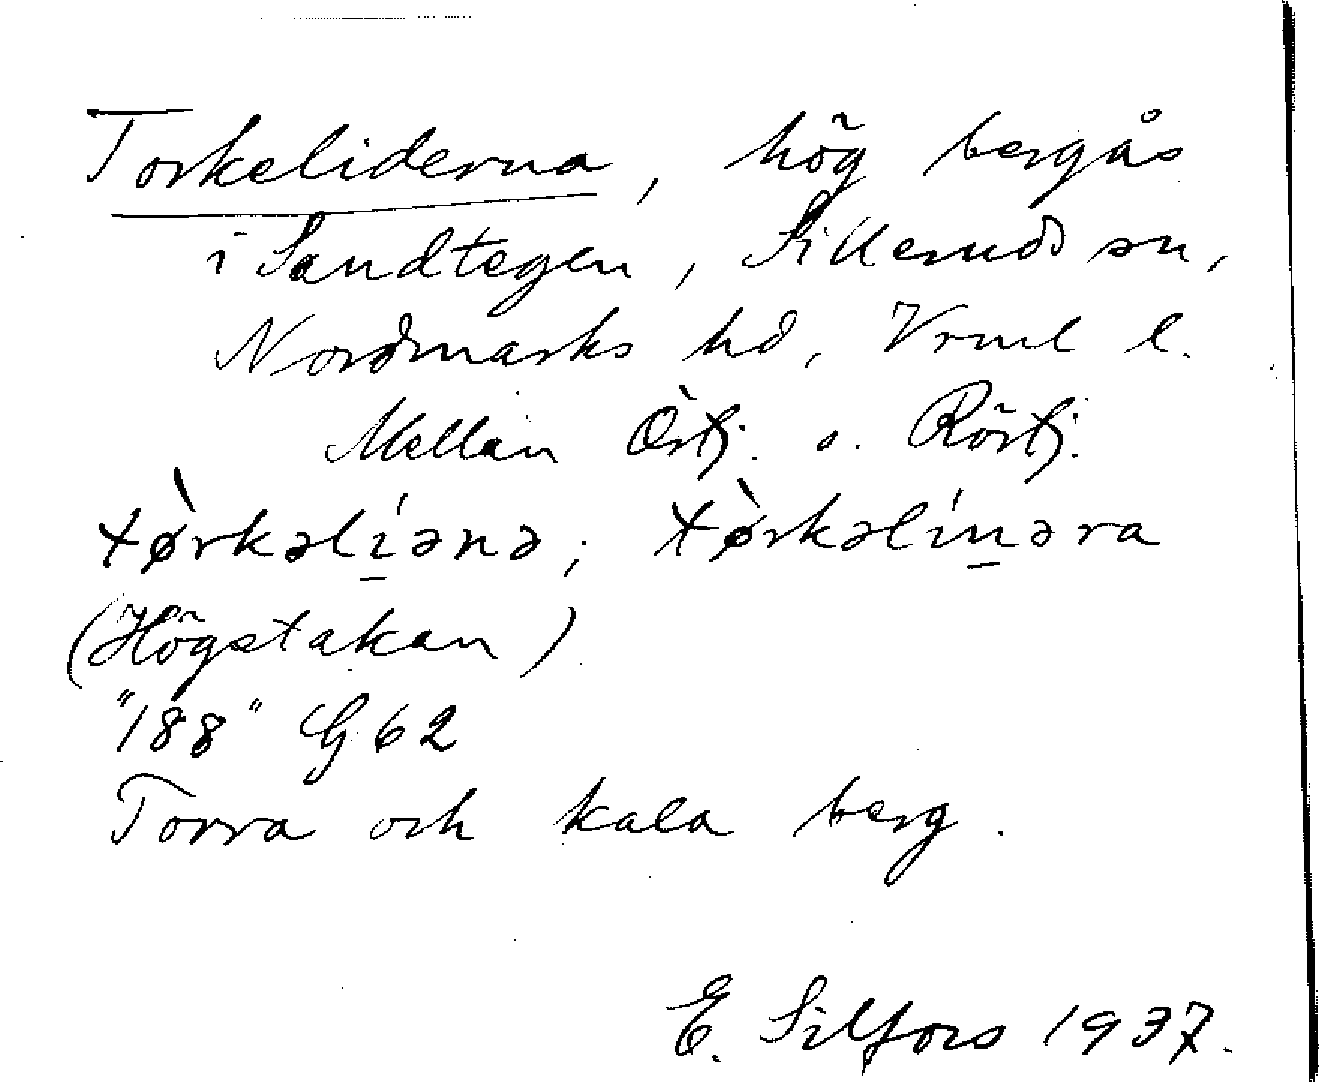 Torkeliderna, hög bergås
i Sandtegen, Silleruds sn,
Nordmarks hd, Vrml l.
Mellan Örtj. o. Rörtj.
tørkəli̱ənə; tørkəlinəra
(Högstakan)
"188" G62
Torra och kala berg.
E. Silfors 1937.